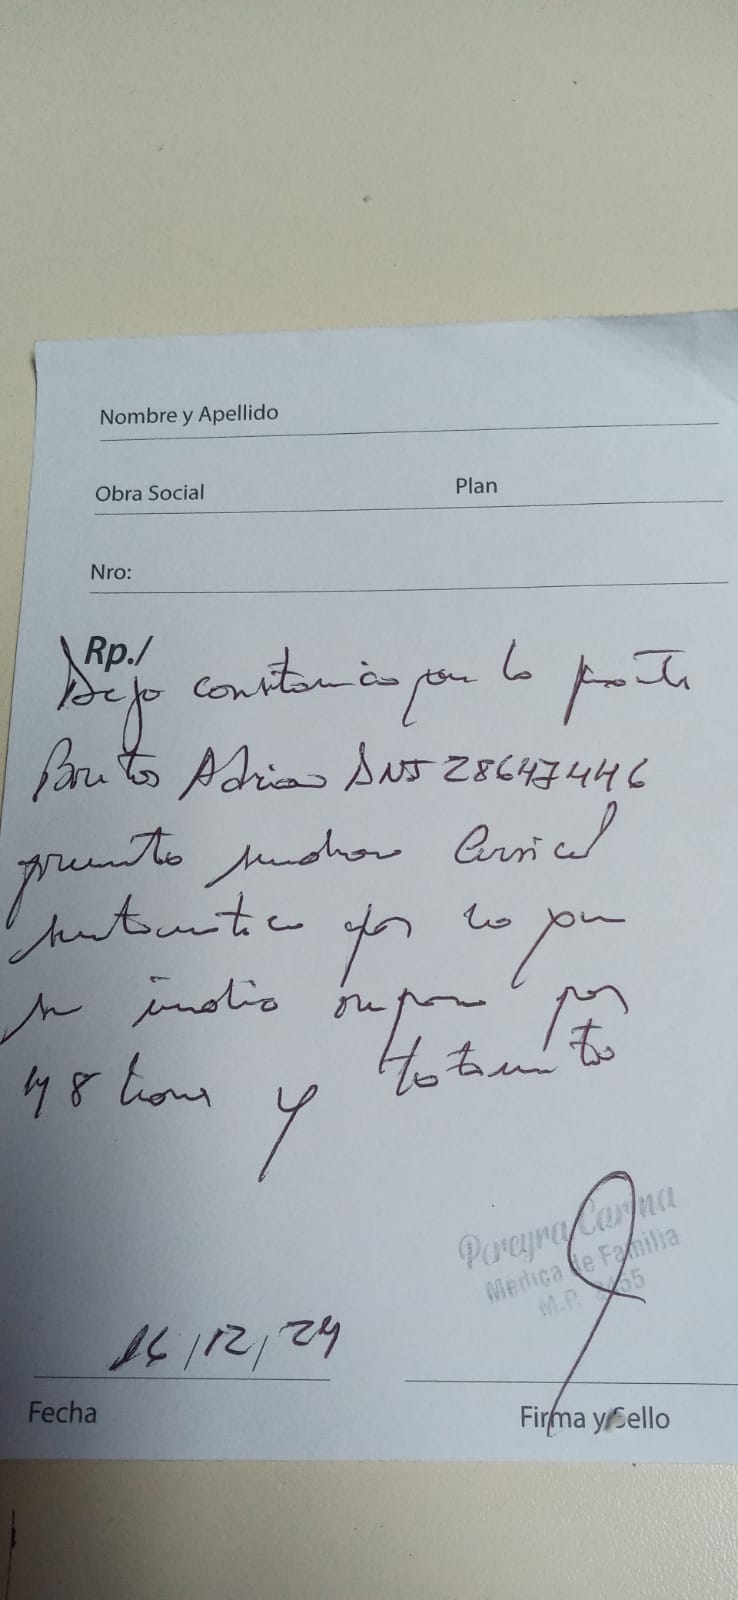 Nombre y Apellido
Obra Social Plan
Nro:
Rp./
Dejo constancia que la pacte
Adrian DNI 28647446
presenta sindrome Cervical
por lo que
se indica reposo por
48 horas y tratamiento
Pereyra Carina
Medica de Familia
M.P.
16/12/24
Fecha Firma y Sello